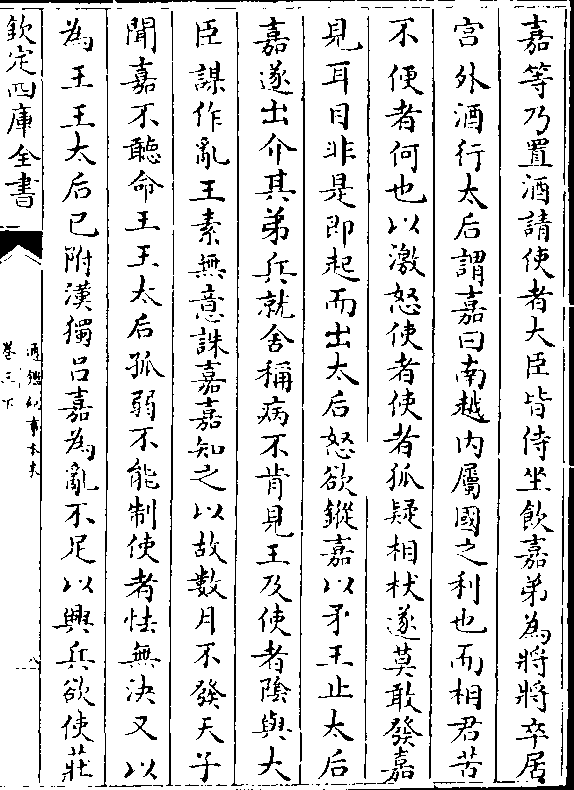 嘉等乃置酒請使者大臣皆侍坐飲嘉弟為將將卒居
宫外酒行太后謂嘉曰南越内屬國之利也而相君苦
不便者何也以激怒使者使者狐疑相杖遂莫敢發嘉
見耳目非是即起而出太后怒欲鏦嘉以矛王止太后
嘉遂出介其弟兵就舍稱病不肯見王及使者陰與大
臣謀作亂王素無意誅嘉嘉知之以故數月不發天子
聞嘉不聽命王王太后孤弱不能制使者怯無決又以
為王王太后已附漢獨吕嘉為亂不足以興兵欲使莊
欽定四庫全書
通鑑紀事本末
卷三下
八